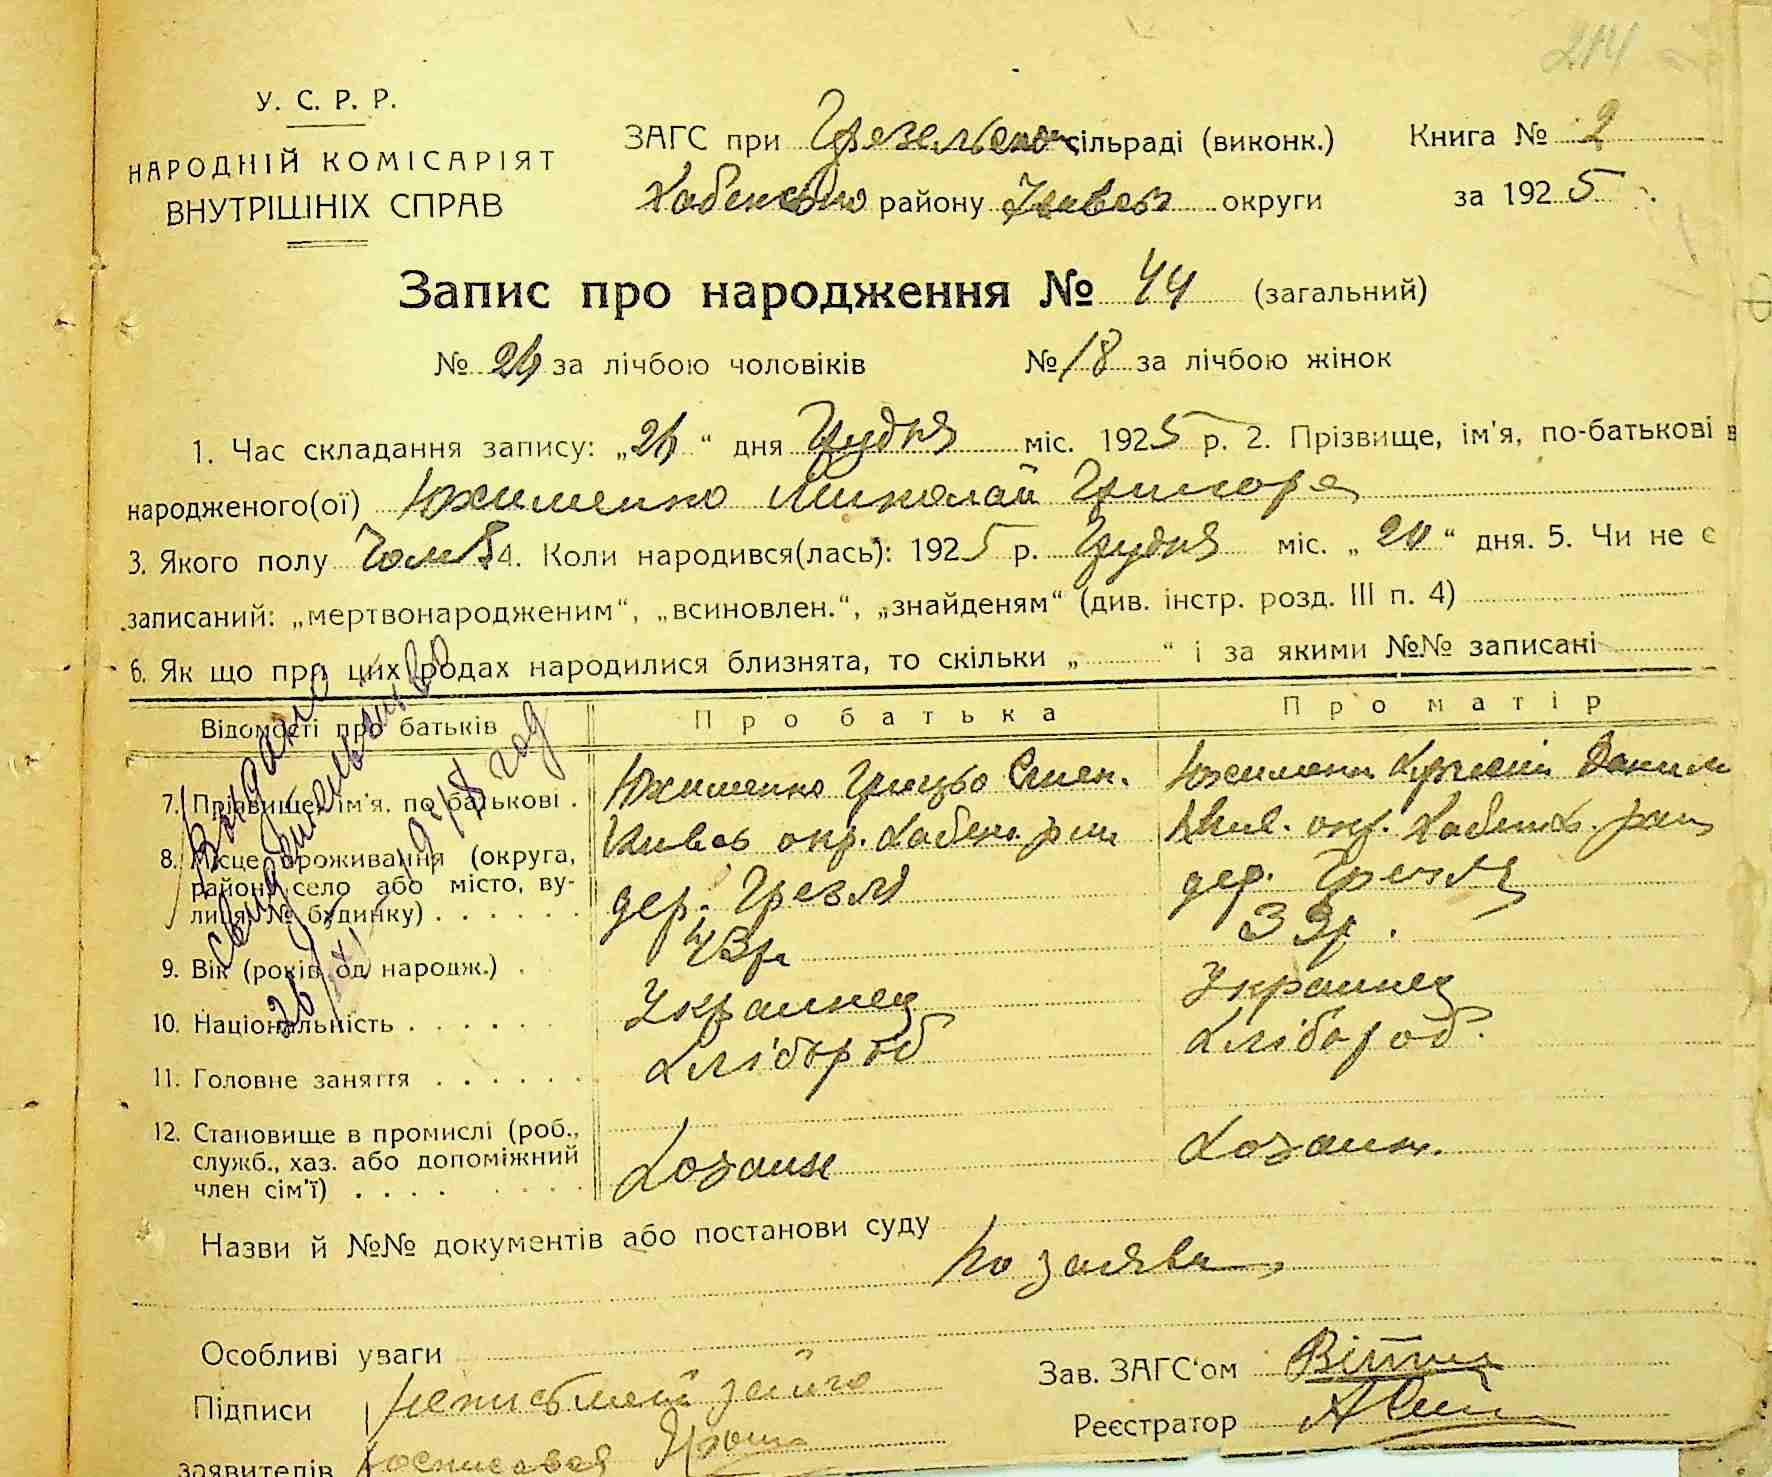 214
У. С. Р. Р.
НАРОДНІЙ КОМІСАРІЯТ
ВНУТРІШНІХ СПРАВ
ЗАГС при сільраді (виконк.) Книга № 2
Хабенсько району округи за 1925
Запис про народження № 44 (загальний)
№ 26 за лічбою чоловіків № 18 за лічбою жінок
1. Час складання запису: „26“ дня Грудня міс. 1925 р. 2. Прізвище, ім'я, по-батькові в
народженого(ої) Юхименко Миколай Григоре
3. Якого полу 4. Коли народився(лась): 1925 р. Грудня міс. „20“ дня. 5. Чи не є
записаний: „мертвонародженим“, „всиновлен.“, „знайденям“ (див. інстр. розд. III п. 4)
6. Як що при цих родах народилися близнята, то скільки „ “ і за якими №№ записані
Відомості про батьків Про батька Про матір
7. Прізвище, ім'я, по батькові . Юхименко Грицько Юхименко Данил
8. Місце проживання (округа, район, село або місто, вулиця, № будинку) . . . . . . Киевс окр. Хабен. Киев. окр. Хабенск. рай
дер. Грезля дер. Грезля
9. Вік (років од народж.) . 43 р 33 р.
10. Національність . . . . . . Украинец Украинец
11. Головне заняття . . . . . . Хлібороб Хлібороб.
12. Становище в промислі (роб.,
служб., хаз. або допоміжний
член сім'ї) . . . . Хозаин Хозаин.
Выдано
свидетельство
26/XI 1948 год
Назви й №№ документів або постанови суду
по заяве
Особливі уваги
Зав. ЗАГС'ом
Підписи неписьмен за його
Реєстратор
заявителів росписавсь